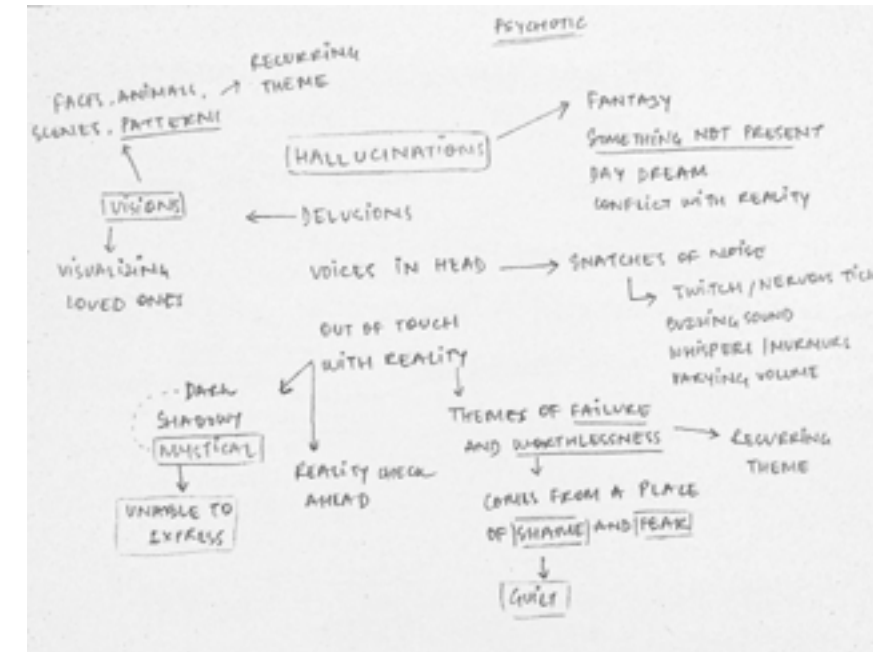 PSYCHOTIC
FACES, ANIMALS,
SCENES, PATTERNS
RECURRING
THEME
HALLUCINATIONS
FANTASY
SOMETHING NOT PRESENT
DAY DREAM
CONFLICT WITH REALITY
VISIONS
DELUCIONS
VISUALIZING
LOVED ONES
VOICES IN HEAD
SNATCHES OF NOISE
TWITCH/NERVOUS TICK
BUZZING SOUND
WHISPERS/MURMURS
VARYING VOLUME
OUT OF TOUCH
WITH REALITY
DARK
SHADOWY
MYSTICAL
UNABLE TO
EXPRESS
REALITY CHECK
AHEAD
THEMES OF FAILURE
AND WORTHLESSNESS
RECURRING
THEME
COMES FROM A PLACE
OF SHAME AND FEAR
GUILT